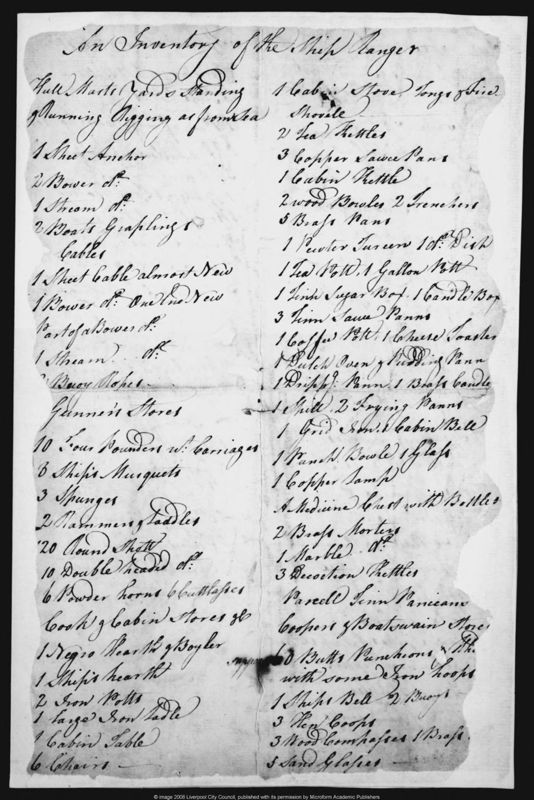 An Inventory of the Ship Ranger
Hull Masts Yards Standing
& Running Rigging as from Sea
1 Sheet Anchor
2 Bower do.
1 Stream do.
2 Boats Graplings
Cables
1 Sheet Cable almost New
1 Bower do. One End New
Part of a Bower do.
1 Stream do.
Buoy Ropes
Gunners Stores
10 Four Pounders wt. Carriages
8 Ships Musquets
3 Spunges
2 Rammers & Laddles
20 Round Shott
10 Double headed do.
6 Powder horns 6 Cuttlasses
Cook & Cabin Stores &c
1 Negro Hearth & Boyler
1 Ships hearth
2 Iron Potts
1 large Iron Ladle
1 Cabin Table
6 Chairs
1 Cabin Stove Tongs & Fire
Shovell
2 Tea Kettles
3 Copper Sawce Pans
1 Cabin Kettle
2 wood Bowles 2 Trenchers
5 Brass Pans
1 Pewter Tureen 1 do. Dish
1 Tea Pott. 1 Gallon Pott
1 Tinn Sugar Box. 1 Candle Box
3 Tinn Sawce Panns
1 Coffee Pott. 1 Cheese Toaster
1 Dutch Oven & Pudding Pann
1 Drippg. Pann. 1 Brass Candle
1 Spitt. 2 Frying Panns
1 Grid Iron. a Cabin Bell
1 Punch Bowle 1 Glass
1 Copper Lamp
A Medicine Chest with Bottles
2 Brass Morters
1 Marble do.
3 Decoction Kettles
Parcell Tinn Panicans
Coopers & Boatswain Stores
60 Butts Puncheons &
with some Iron hoops
1 Ships Bell 2 Buoys
3 Hen Coops
3 Wood Compasses 1 Brass
5 Sand Glasses
© image 2006 Liverpool City Council, published with its permission by Microform Academic Publishers